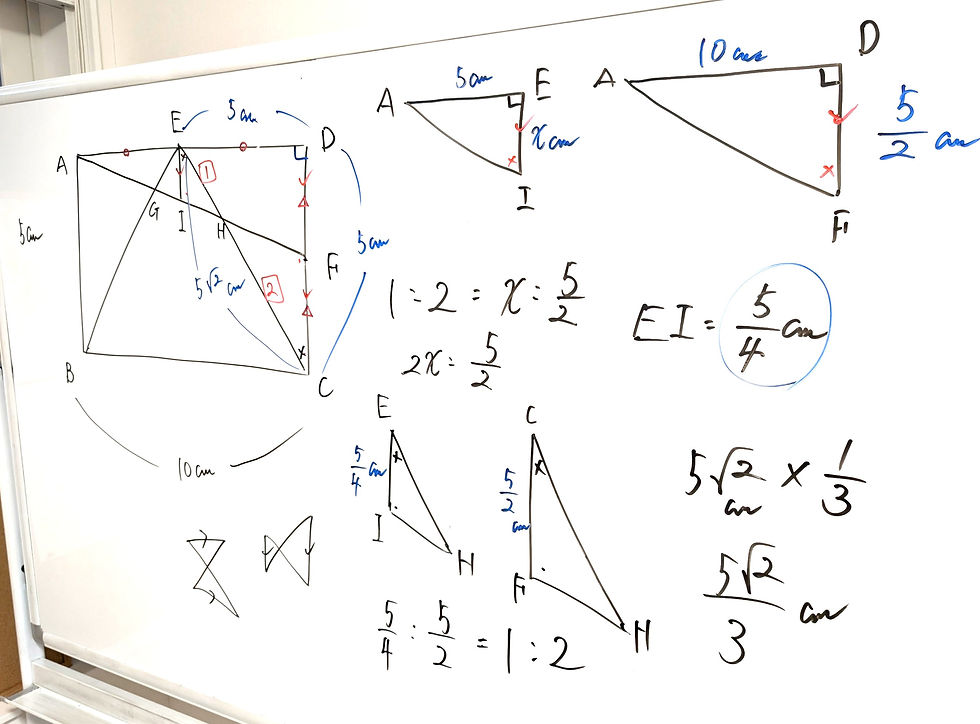 E
5cm
D
A
1
G
I
H
5cm
5cm
F
5√2 cm
2
B
C
10cm
A
5cm
E
xcm
I
A
10cm
D
5/2 cm
F
1:2 = x:5/2
2x = 5/2
EI = 5/4 cm
E
5/4 cm
I
H
C
5/2 cm
F
H
5/4 : 5/2 = 1:2
5√2 cm × 1/3
5√2/3 cm